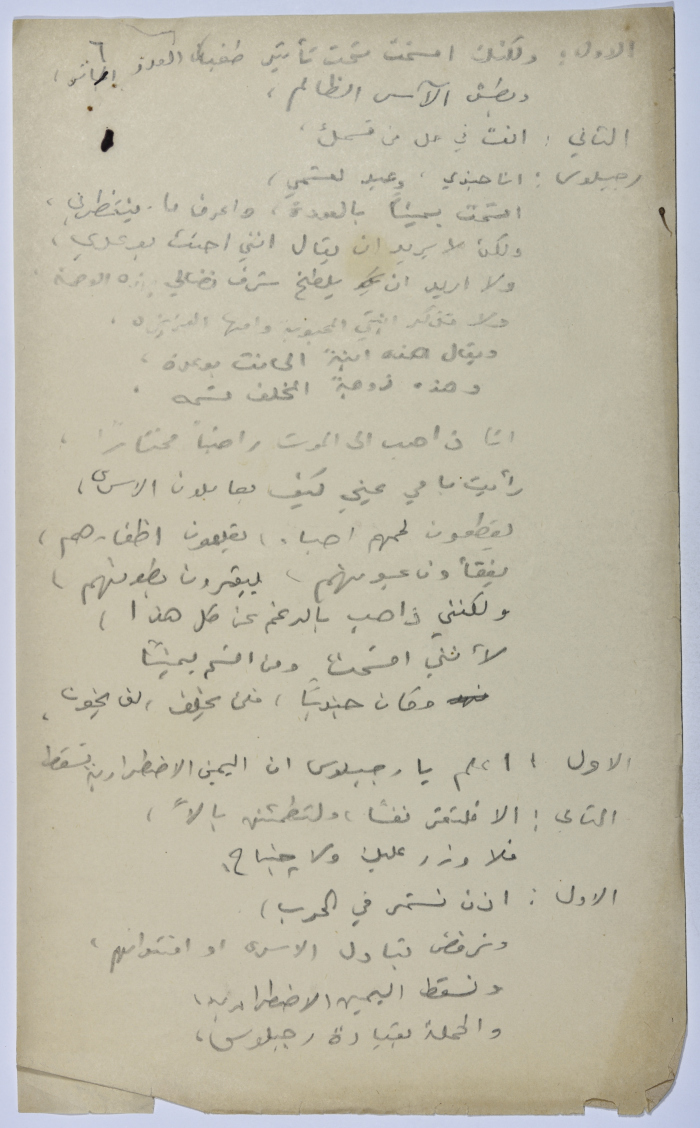 ٦
الاول: ولكنك اقسمت تحت تأثير طغيان العدو
وبطش الآسر الظالم،
الثاني: انت في حل من قسمك،
رجيلوس: انا جندي، وعبد لقسمي،
اقسمت يميناً بالعودة، واعرف ما ينتظرني،
ولكن لا اريد ان يقال انني اخنث بوعدي،
ولا اريد ان يلطخ شرف نضالي هذه الوصمة
ولا تذكر ابنتي المحبوبة وامها العزيزة.
ويقال هذه ابنة الخائن بوعده،
وهذه زوجة المخلف قسمه.
انا ذاهب الى الموت راضياً مختاراً،
رأيت بأم عيني كيف يعاملون الاسرى،
يقطعون لحمهم احياء، يقلعون اظفارهم،
يفقأون عيونهم، يبقرون بطونهم،
ولكنني ذاهب بالرغم عن كل هذا،
لأنني اقسمت ومن اقسم يميناً
وكان جندياً، فلن يخلف، لن يخون،
الاول: اعلم يا رجيلوس ان اليمين الاضطرارية تسقط
الثاني: الا فلتقر نفساً، ولتطمئن بالاً،
فلا وزر عليك ولا جناح،
الاول: اذن نستمر في الحرب،
ونرفض تبادل الاسرى او افتدائهم،
ونسقط اليمين الاضطرارية،
والحملة بقيادة رجيلوس،